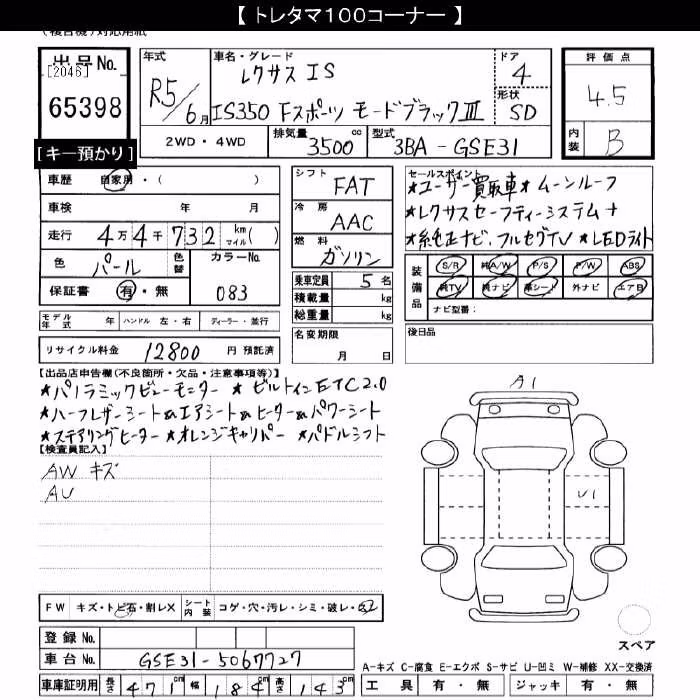 【 トレタマ100コーナー 】
出品No.
[2046]
65398
[キー預かり]
年式
R5/6月
車名・グレード
レクサス IS
IS350 Fスポーツ モードブラックⅢ
ドア
4
形状
SD
評価点
4.5
内装
B
2WD・4WD
排気量 3500 cc
型式 3BA-GSE31
車歴 自家用・( )
車検 年 月
走行 4万4千732 km マイル( )
色 パール 色替
カラーNo. 083
保証書 有・無
モデル年式 年 ハンドル 左・右 ディーラー・並行
リサイクル料金 12800 円 預託済
シフト FAT
冷房 AAC
燃料 ガソリン
乗車定員 5 名
積載量 kg
総重量 kg
名変期限
月 日
セールスポイント
★ユーザー買取車★ムーンルーフ
★レクサスセーフティーシステム+
★純正ナビ、フルセグTV ★LEDライト
装備品
S/R 純A/W P/S P/W ABS
純TV 純ナビ 革シート 外ナビ エアB
ナビ型番:
後日品
【出品店申告欄(不良箇所・欠品・注意事項等)】
★パノラミックビューモニター ★ビルトインETC2.0
★ハーフレザーシート&エアシート&ヒーター&パワーシート
★ステアリングヒーター ★オレンジキャリパー ★パドルシフト
【検査員記入】
AW キズ
AU
A1
U1
スペア
FW キズ・トビ石・割レX シート内装 コゲ・穴・汚レ・シミ・破レ・
登録No.
車台No. GSE31-5067727
車庫証明用 長さ 471cm 幅 184cm 高さ 143cm
A-キズ C-腐食 E-エクボ S-サビ U-凹ミ W-補修 XX-交換済
工具 有・無 ジャッキ 有・無